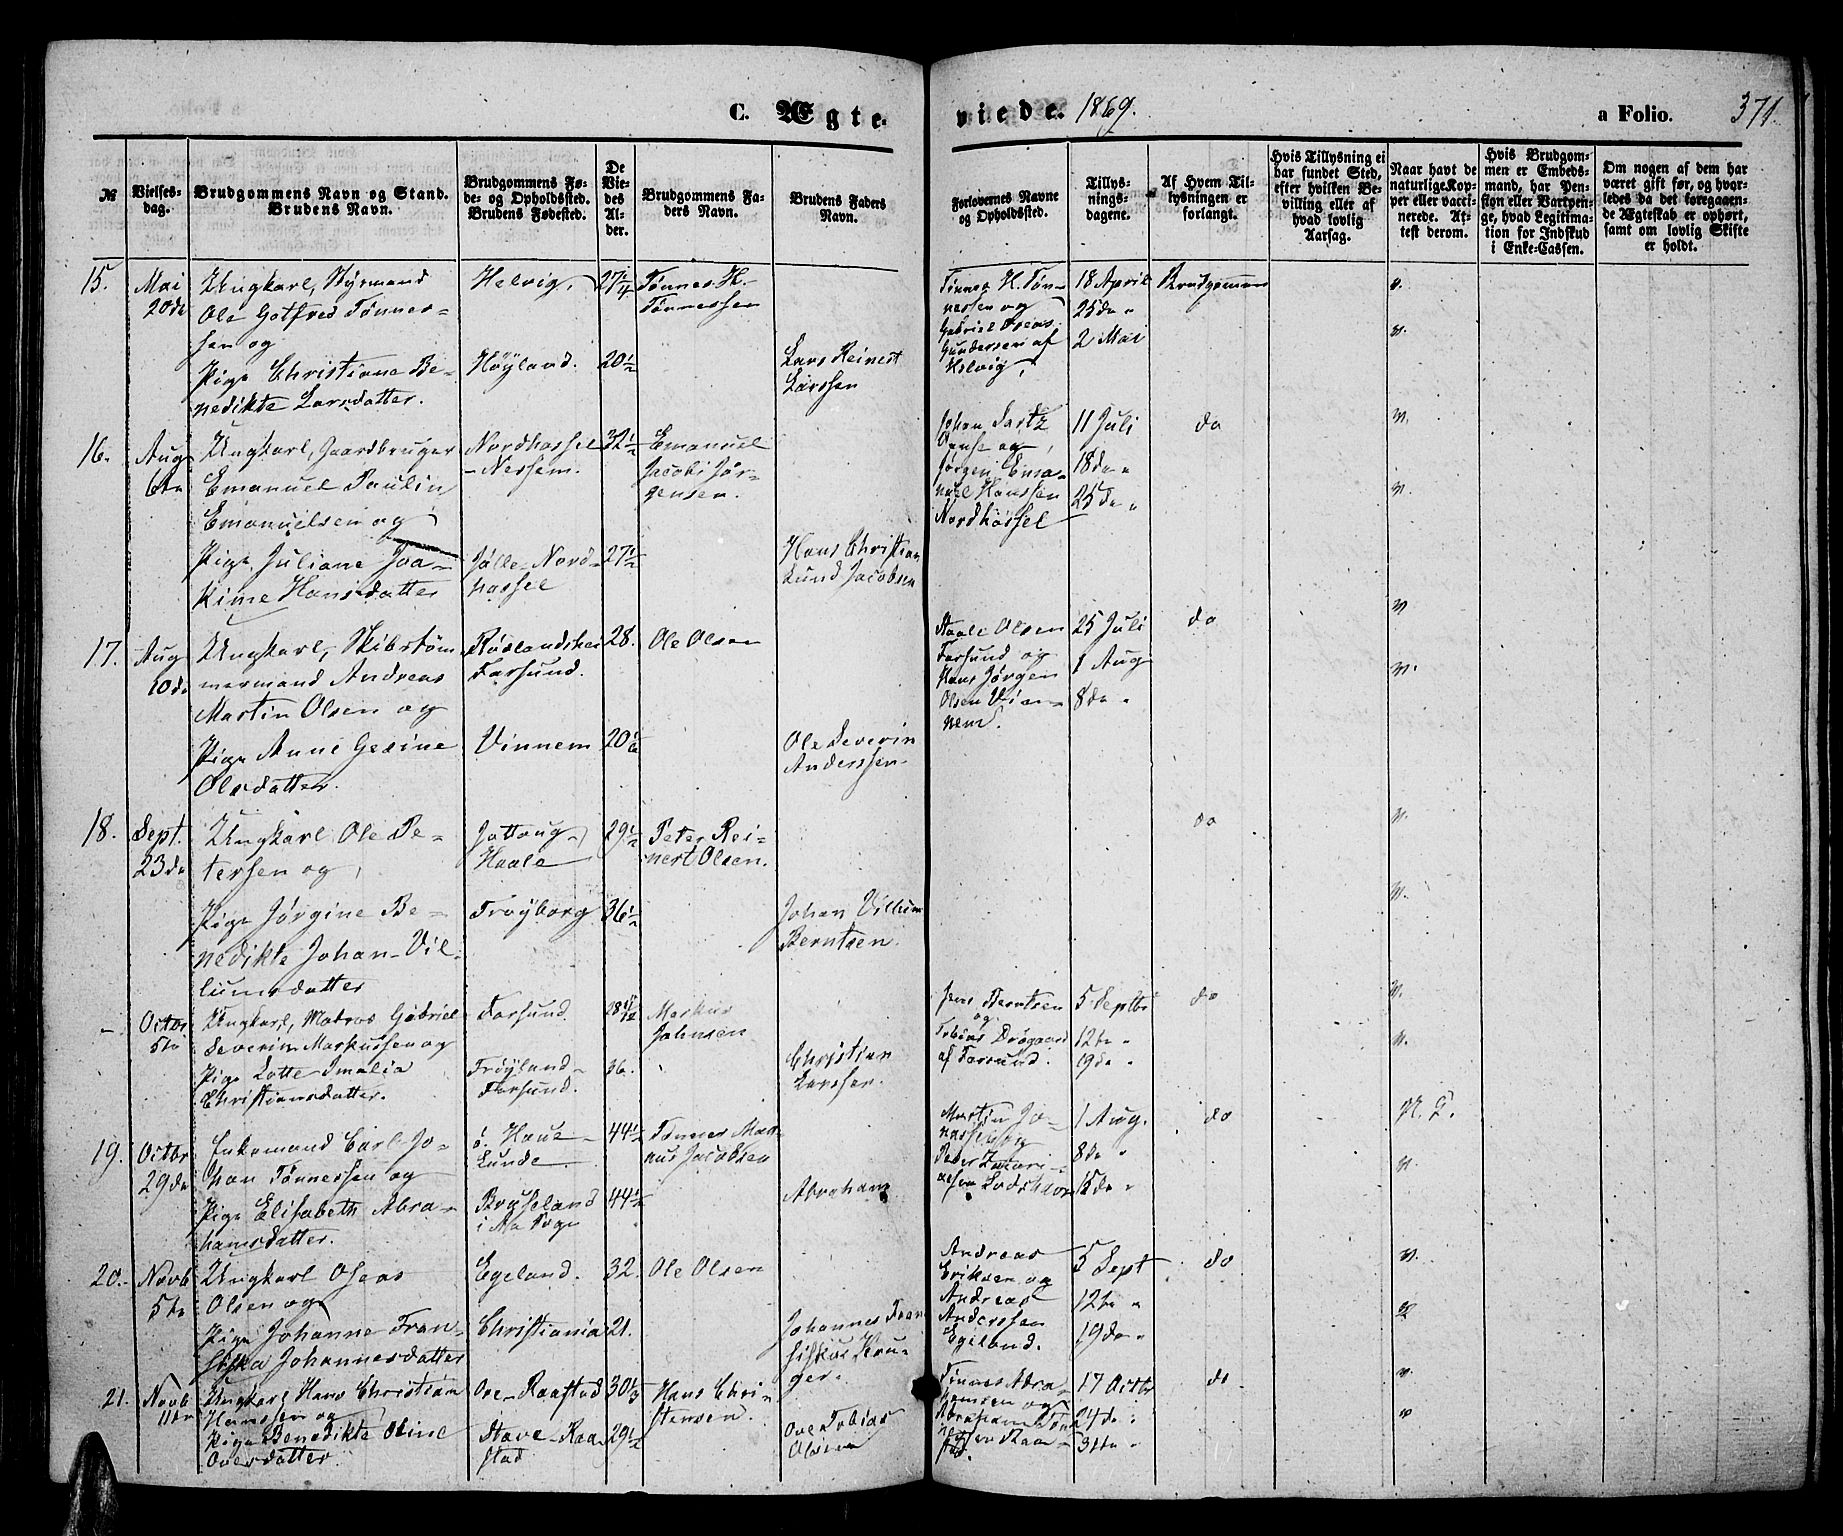 C. Ægte-
viede. 1869.
a Folio. 371.
№
Vielses-
dag.
Brudgommens Navn og Stand.
Brudens Navn.
Brudgommens Fø-
de- og Opholdssted.
Brudens Fødested.
De
Vie-
des
Al-
der.
Brudgommens Fa-
ders Navn.
Brudens Faders
Navn.
Forlovernes Navne
og Opholdssted.
Tillys-
nings-
dagene.
Af Hvem Til-
lysningen er
forlangt.
Hvis Tillysning ei
har fundet Sted,
efter hvilken Be-
villing eller af
hvad lovlig
Aarsag.
Naar havt de
naturlige Kop-
per eller vacci-
nerede. At-
test derom.
Hvis Brudgom-
men er Embeds-
mand, har Pen-
sion eller Vartpen-
ge, hvad Legitima-
tion for Indskud
i Enke-Cassen.
Om nogen af dem har
været gift før, og hvor-
ledes da det foregaaen-
de Ægteskab er ophørt,
samt om lovlig Skifte
er holdt.
15.
Mai
20de
Ungkarl, Styrmand
Ole Gotfred Tønnes-
sen og
Pige Christiane Be-
nedikte Larsdatter.
Helvig,
Høyland.
27 1/4
20 1/2
Tønnes H.
Tønnessen
Lars Reinert
Larssen
Tønnes H. Tøn-
nessen og
Gabriel Oseas
Gundersen af
Helvig,
18 April
25de "
2 Mai
Brudgommen
v.
v.
16.
Aug
6te
Ungkarl, Gaardbruger
Emanuel Paulin
Emanuelsen og
Pige Juliane Joa-
kime Hansdatter
Nordhassel
-Nessem.
Jølle-Nord-
hassel
32 1/2
27 1/2
Emanuel
Jacobi Jør-
gensen.
Hans Christian
Lund Jacobsen
Johan
og
Jørgen Ema-
nuel Hanssen
Nordhassel
11 Juli
18de "
25de "
do
v.
v.
17.
Aug
10de
Ungkarl, Skibstøm-
mermand Andreas
Martin Olsen og
Pige Anne Gesine
Olsdatter.
Farsund.
Vinnem
28.
20 1/6
Ole Olsen
Ole Severin
Anderssen.
Staale Olsen
Farsund og
Hans Jørgen
Olsen Vin-
nem.
25 Juli
1 Aug
8de "
do
v.
v.
18.
Sept.
23de
Ungkarl Ole Pe-
tersen og
Pige Jørgine Be-
nedikte Johan-Vil-
lumsdatter
Jøttoug-
Haale
Trøyborg
29 1/2
36 1/2
Peter Rei-
nert Olsen.
Johan Villum
Berntsen.
do
v.
v.
-
Octbr
5te
Ungkarl, Matros Gabriel
Severin Markussen og
Pige Lotte Amalia
Christiansdatter.
Farsund.
Frøyland-
Farsund.
28
26.
Markus
Johnsen
Christian
Larssen.
Jens Berntsen
og
Tobias
af Farsund.
5 Septbr
12te "
19de "
do
v.
v.
19.
Octbr
29de
Enkemand Carl Jo-
han Tønnessen og
Pige Elisabeth Abra-
hamsdatter.
ø. Haue-
Lunde
Bryseland
i Aa Sogn
44 1/2
44 1/2
Tønnes Mag-
nus Jacobsen
Abraham
Martin Jo-
nassen og
Peder Zakari-
assen
1 Aug.
8de "
15de "
do
N. G.
v.
20.
Novb
5te
Ungkarl Oseas
Olsen og
Pige Johanne Fran-
siska Johannesdatter
Egeland.
Christiania
32.
21.
Ole Olsen
Johannes Fran-
siskus Kru-
ger.
Andreas
Eriksen og
Andreas
Anderssen
Egeland.
5 Sept
12te "
19de "
do
v.
v.
21.
Novb
11te
Ungkarl Hans Christian
Hanssen og
Pige Benedikte Oline
Ovesdatter.
Ore-Raastad
Stave-Raa-
stad
30 1/3
29 1/2
Hans Chri-
stensen.
Ove Tobias
Olsen
Tønnes Abra-
hamsen og
Abraham Tøn-
nessen Raa-
stad.
17 Octbr
24de "
31te "
do
v.
v.